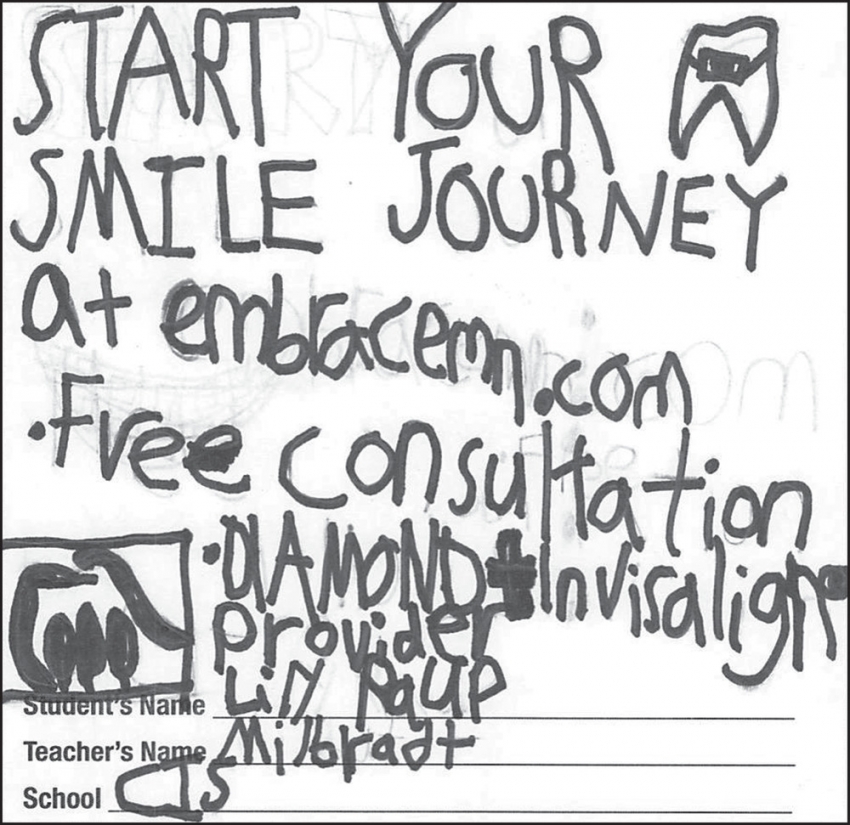 START YOUR
SMILE JOURNEY
at embracemn.com
•Free consultation
•DIAMOND+ Invisalign
provider
Student's Name Lily Raup
Teacher's Name Milbradt
School CIS